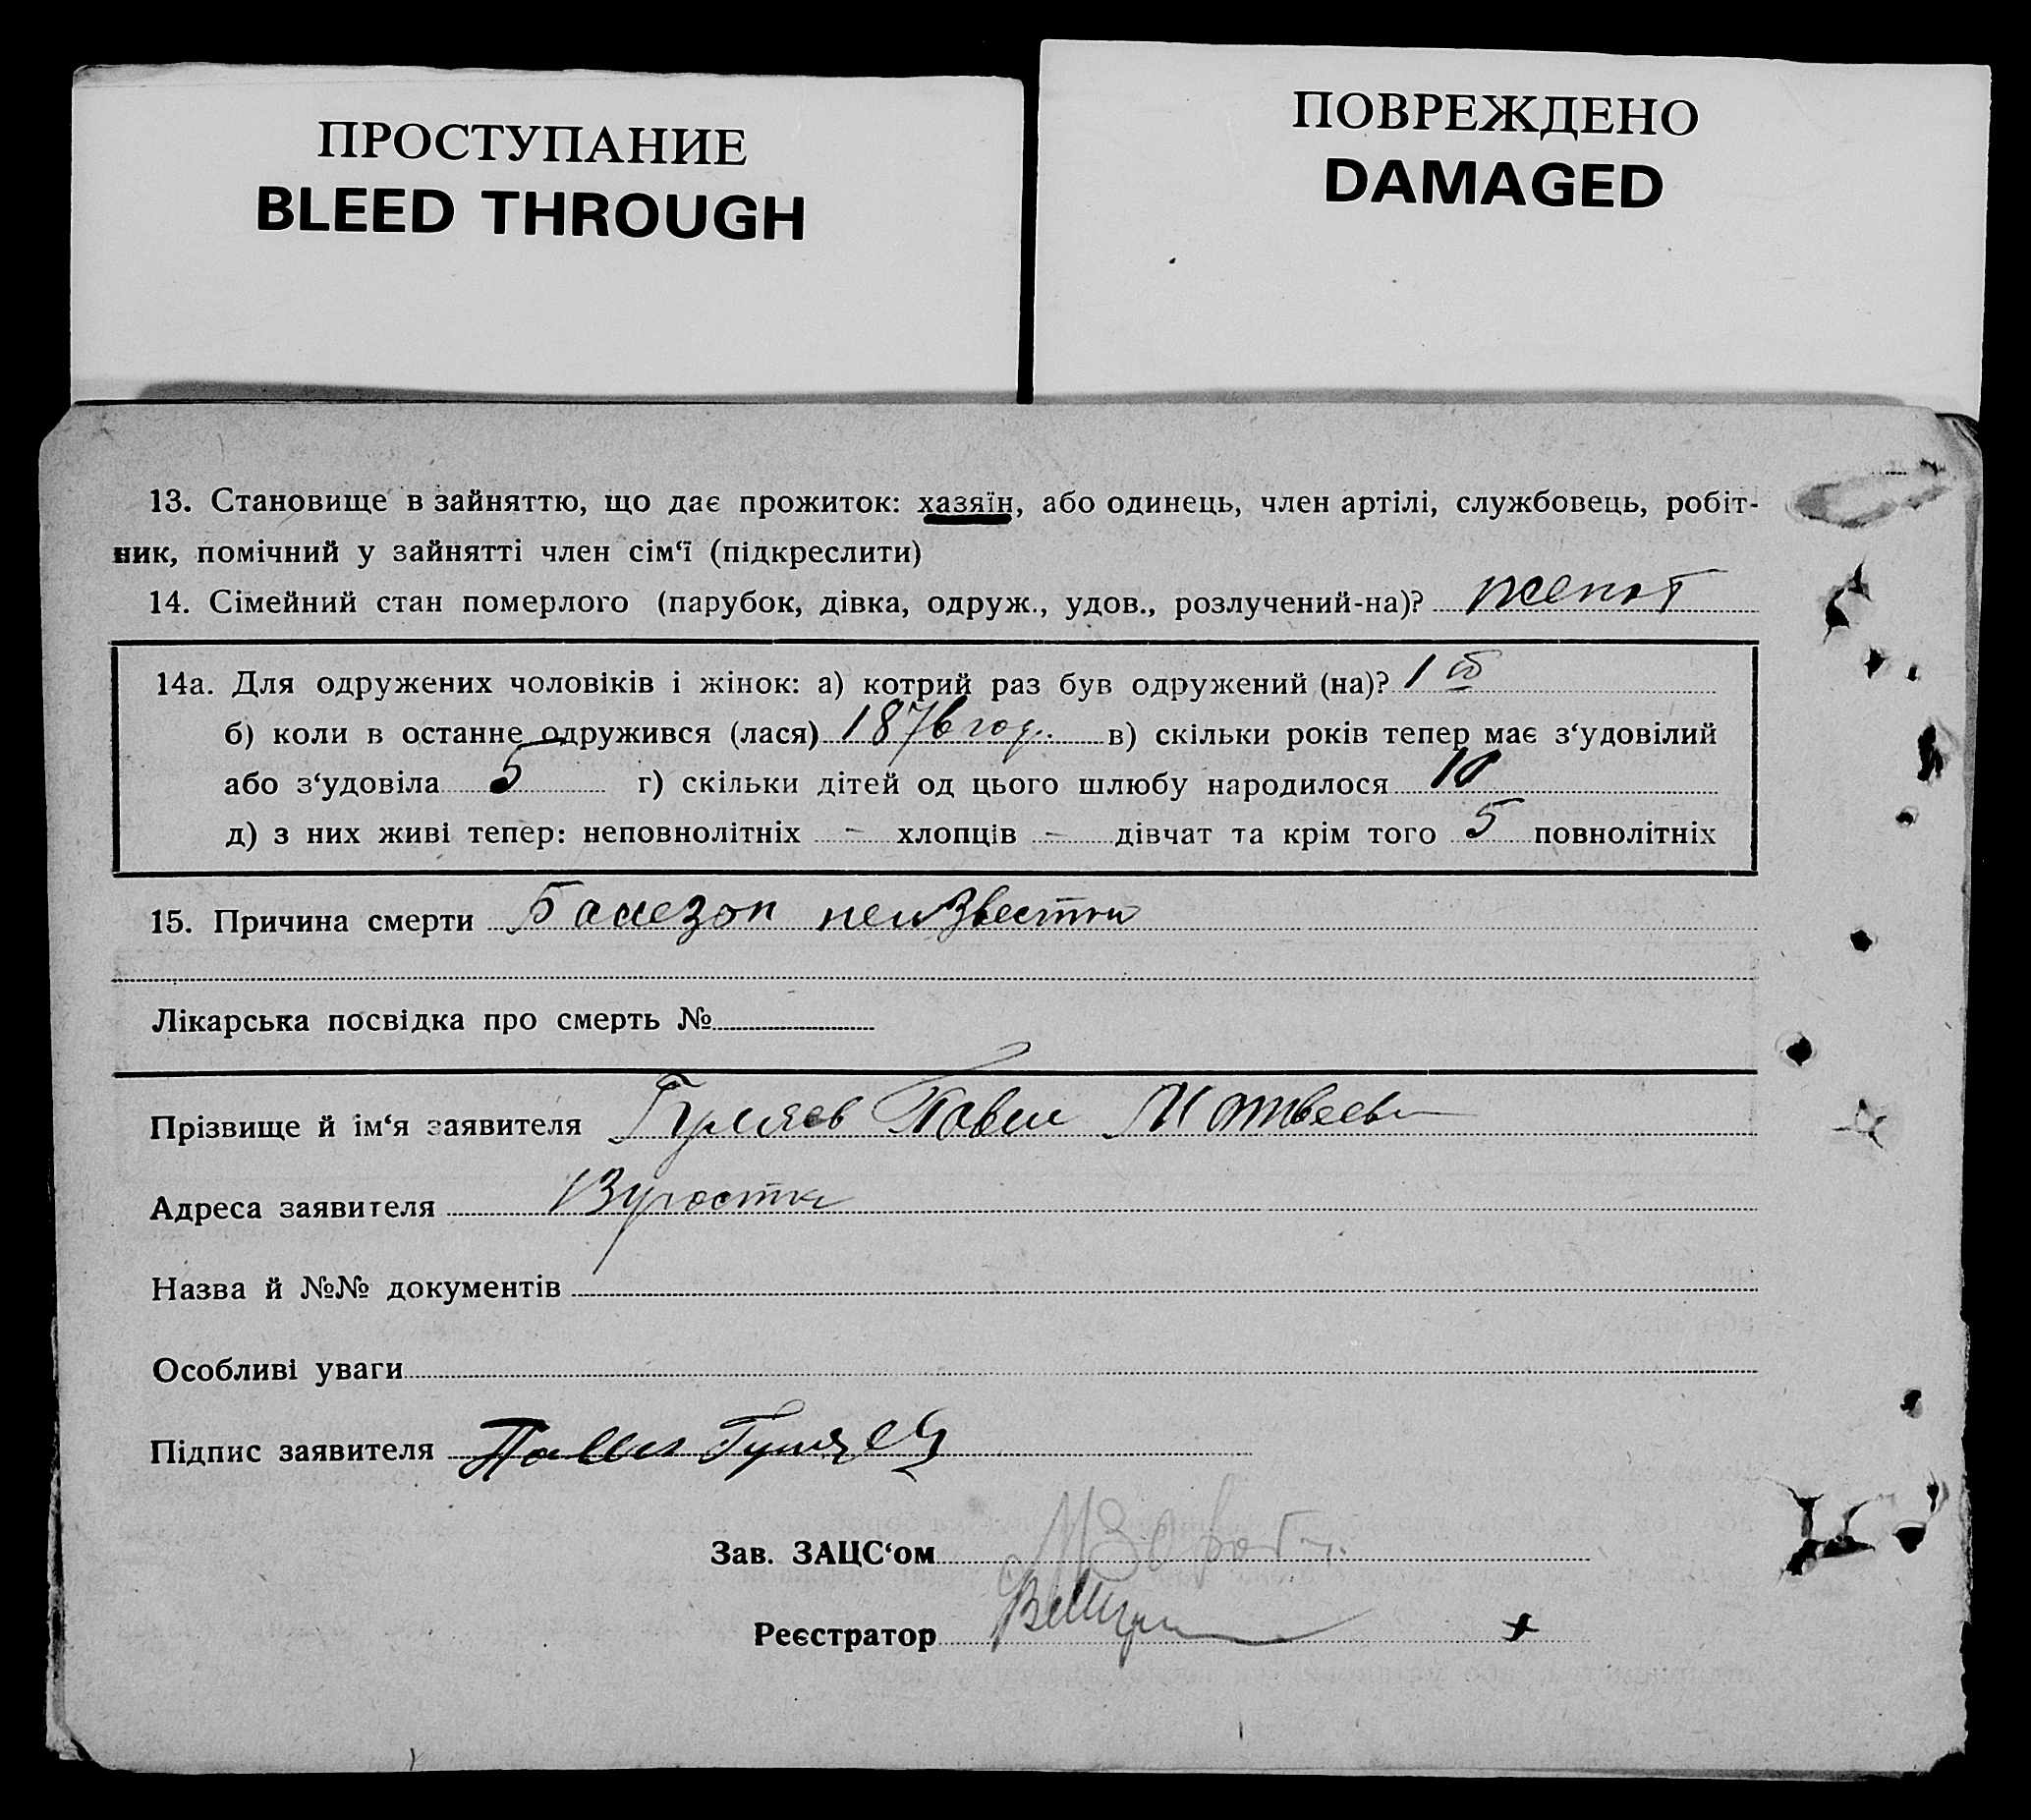 ПРОСТУПАНИЕ
BLEED THROUGH
ПОВРЕЖДЕНО
DAMAGED
13. Становище в зайняттю, що дає прожиток: хазяїн, або одинець, член артілі, службовець, робіт-
ник, помічний у зайнятті член сім‘ї (підкреслити)
14. Сімейний стан померлого (парубок, дівка, одруж., удов., розлучений-на)? женат
14а. Для одружених чоловіків і жінок: а) котрий раз був одружений (на)? 1
б) коли в останнє одружився (лася) 1876 год. в) скільки років тепер має з‘удовілий
або з‘удовіла 5 г) скільки дітей од цього шлюбу народилося 10
д) з них живі тепер: неповнолітніх - хлопців - дівчат та крім того 5 повнолітніх
15. Причина смерти неизвестна
Лікарська посвідка про смерть №
Прізвище й ім‘я заявителя Гуляев Павел Матвеев
Адреса заявителя
Назва й №№ документів
Особливі уваги
Підпис заявителя Павел Гуляев
Зав. ЗАЦС‘ом
Реєстратор